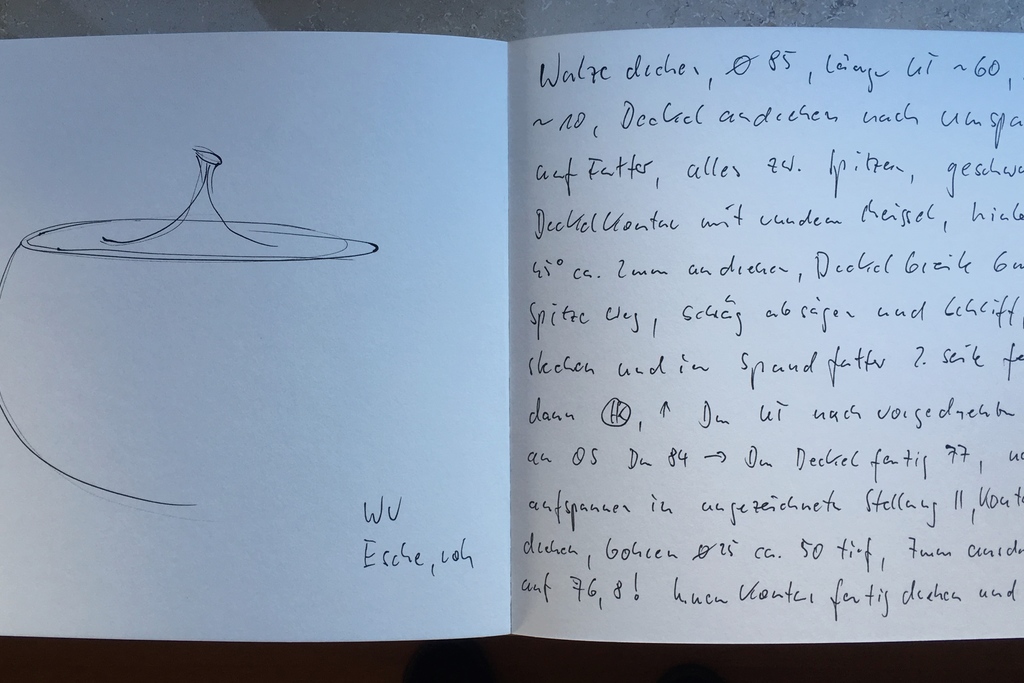 WV
Esche, roh
Walze drehen, ⌀ 85, Länge UT ~60,
~10, Deckel andrehen nach Umspa
auf Futter, alles zw. Spitzen, geschw
Deckelkontur mit runden Meissel, hinte
45° ca. 2mm andrehen, Deckel breite 6m
Spitze weg, schräg absägen und Schliff,
stechen und in Spundfutter 2. seite fe
dann HK, ↑ Dm UT nach vorgedrehte
an OS Dm 84 → Dm Deckel fertig 77,
aufspannen in angezeichnete Stellung ||, Kont
drehen, bohren ⌀ 25 ca. 50 tief, 7mm ausd
auf 76,8! Innen Kontur fertig drehen und